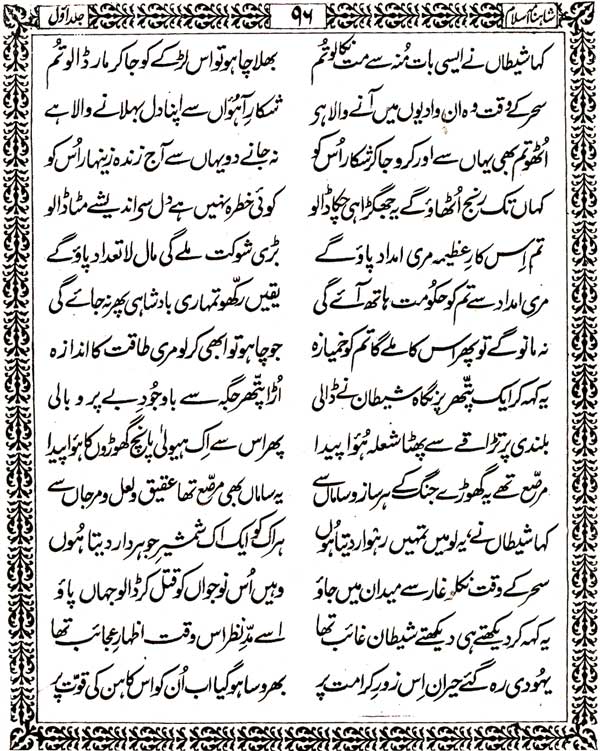 شاہنامۂ اسلام ۹۶ جلد اوّل
کہا شیطاں نے ایسی بات مُنہ سے مت نکالو تُم بھلا چاہو تو اس لڑکے کو جا کر مار ڈالو تُم
سحر کے وقت وہ ان وادیوں میں آنے والا ہی شکارِ آہُواں سے اپنا دل بہلانے والا ہے
اُٹھو تم بھی یہاں سے اور کرو جا کر شکار اُس کو نہ جانے دو یہاں سے آج زندہ زینہار اُس کو
کہاں تک رنج اُٹھاؤ گے یہ جھگڑا ہی چکا ڈالو کوئی خطرہ نہیں ہے دل سے اندیشے مٹا ڈالو
تم اِس کارِ عظیمہ مری امداد پاؤ گے بڑی شوکت ملے گی مال لا تعداد پاؤ گے
مری امداد سے تم کو حکومت ہاتھ آئے گی یقیں رکھو تمہاری بادشاہی پھر نہ جائے گی
نہ مانو گے تو پھر اس کا ملے گا تم کو خمیازہ جو چاہو تو ابھی کر لو مری طاقت کا اندازہ
یہ کہہ کر ایک پتھر پر نگاہ شیطان نے ڈالی اُڑا پتھر جگہ سے باوجودِ بے پر و بالی
بلندی پر تڑاقے سے پھٹا شعلہ ہُوا پیدا پھر اس سے اِک ہیولیٰ پانچ گھوڑوں کا ہوا پیدا
مرصّع تھے یہ گھوڑے جنگ کے ہر ساز و ساماں سے یہ ساماں بھی مرصّع تھا عقیق و لعل و مرجاں سے
کہا شیطاں نے، یہ لو میں تمہیں رہوار دیتا ہُوں ہر اک کو ایک اک شمشیر جوہر دار دیتا ہُوں
سحر کے وقت نکلو غار سے میدان میں جاؤ وہیں اُس نوجواں کو قتل کر ڈالو جہاں پاؤ
یہ کہہ کر دیکھتے ہی دیکھتے شیطان غائب تھا اسے مدِّ نظر اس وقت اظہارِ عجائب تھا
یہودی رہ گئے حیران اِس زورِ کرامت پر بھروسا ہو گیا اب اُن کو اس کاہن کی قوّت پر